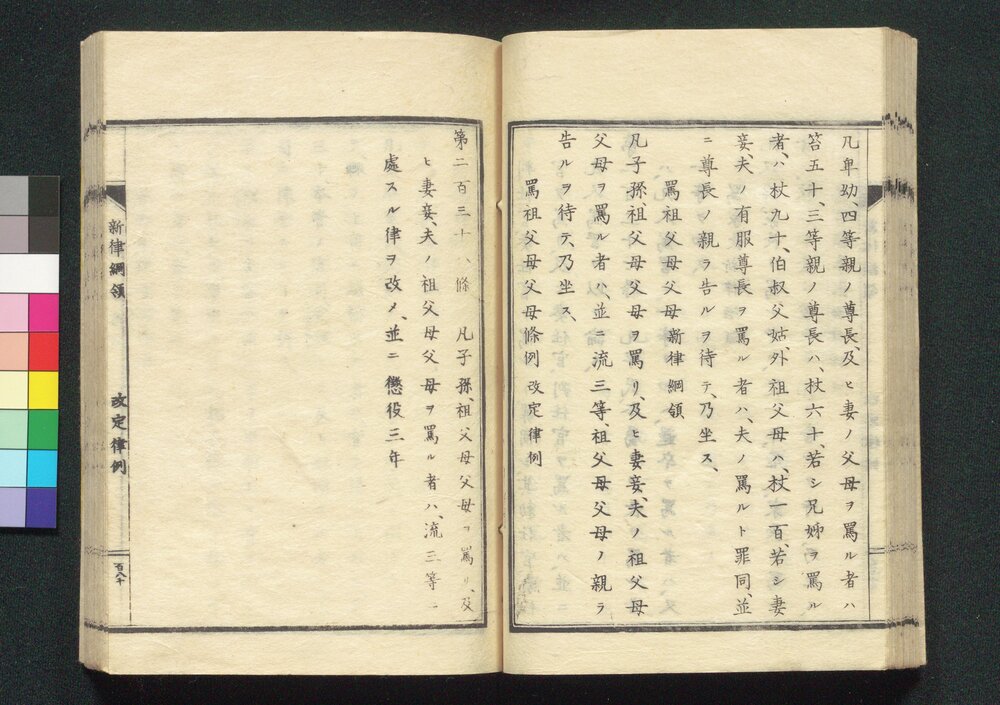 凡卑幼、四等親ノ尊長、及ヒ妻ノ父母ヲ罵ル者ハ
笞五十、三等親ノ尊長ハ、杖六十、若シ兄姉ヲ罵ル
者ハ、杖九十、伯叔父姑、外祖父母ハ、杖一百、若シ妻
妾、夫ノ有服尊長ヲ罵ル者ハ、夫ノ罵ルト罪同、並
ニ尊長ノ親ラ告ルヲ待テ、乃坐ス、
罵祖父母父母 新律綱領
凡子孫、祖父母父母ヲ罵リ、及ヒ妻妾、夫ノ祖父母
父母ヲ罵ル者ハ、並ニ流三等、祖父母父母ノ親ラ
告ルヲ待テ、乃坐ス、
罵祖父母父母條例 改定律例
第二百三十八條 凡子孫、祖父母父母ヲ罵リ、及
ヒ妻妾、夫ノ祖父母父母ヲ罵ル者ハ、流三等ニ
處スル律ヲ改メ、並ニ懲役三年
新律綱領 改定律例
百八十